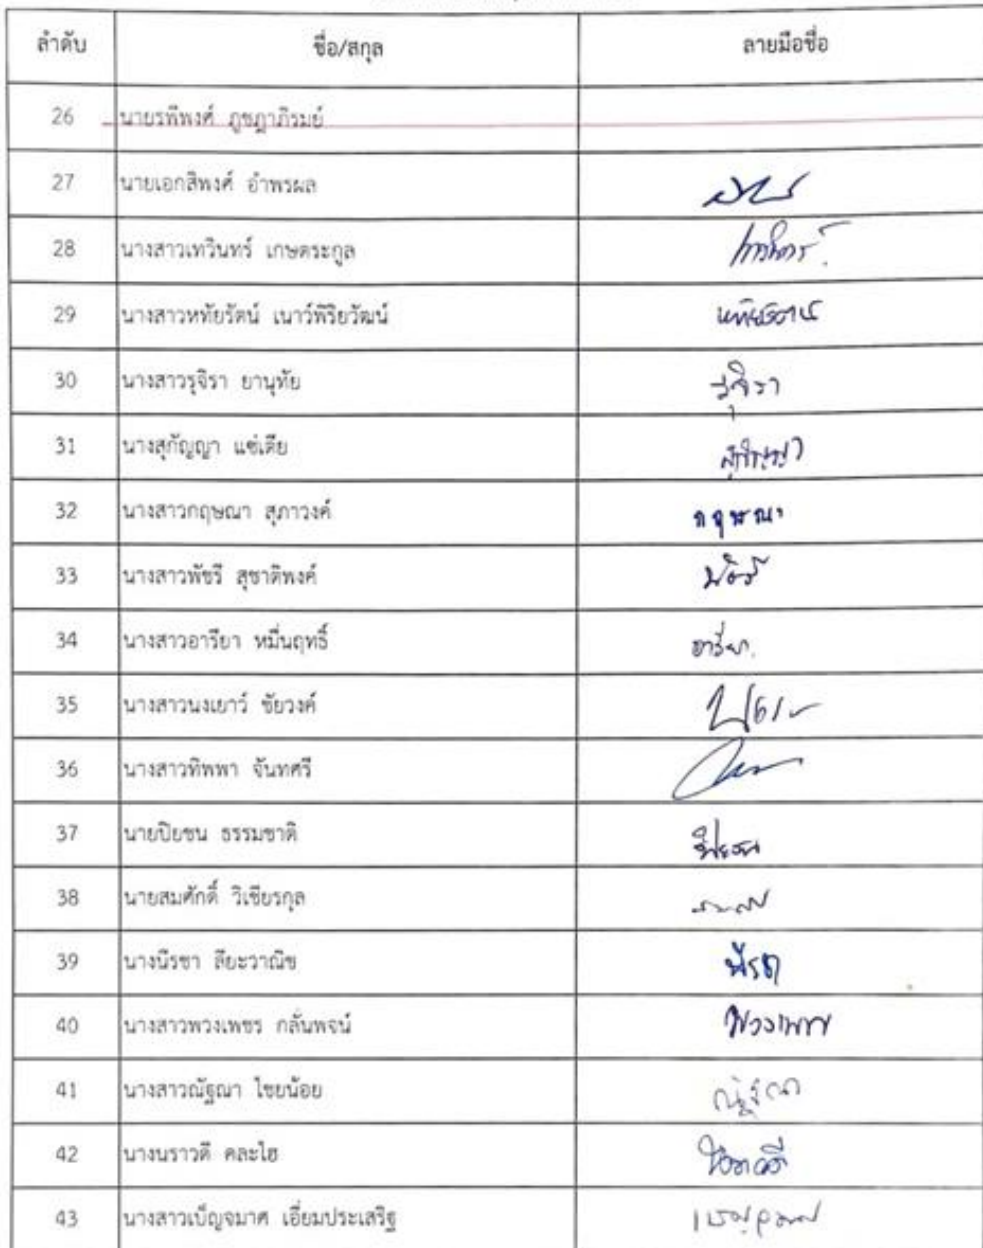 ลำดับ ชื่อ/สกุล ลายมือชื่อ
26 นายรพีพงศ์ ภูชฎาภิรมย์
27 นายเอกสิพงศ์ อำพรผล
28 นางสาวเทวินทร์ เกษตระกูล
29 นางสาวหทัยรัตน์ เนาว์พิริยวัฒน์ หทัยรัตน์
30 นางสาวรุจิรา ยานุทัย รุจิรา
31 นางสุกัญญา แซ่เตีย สุกัญญา
32 นางสาวกฤษณา สุภาวงค์ กฤษณา
33 นางสาวพัชรี สุชาติพงค์ พัชรี
34 นางสาวอารียา หมื่นฤทธิ์ อารียา
35 นางสาวนงเยาว์ ชัยวงค์
36 นางสาวทิพพา จันทศรี
37 นายปิยชน ธรรมชาติ ปิยชน
38 นายสมศักดิ์ วิเชียรกุล
39 นางนีรชา ลียะวาณิช นีรชา
40 นางสาวพวงเพชร กลั่นพจน์ พวงเพชร
41 นางสาวณัฐณา ไชยน้อย ณัฐณา
42 นางนราวดี คละไฮ นราวดี
43 นางสาวเบ็ญจมาศ เอี่ยมประเสริฐ